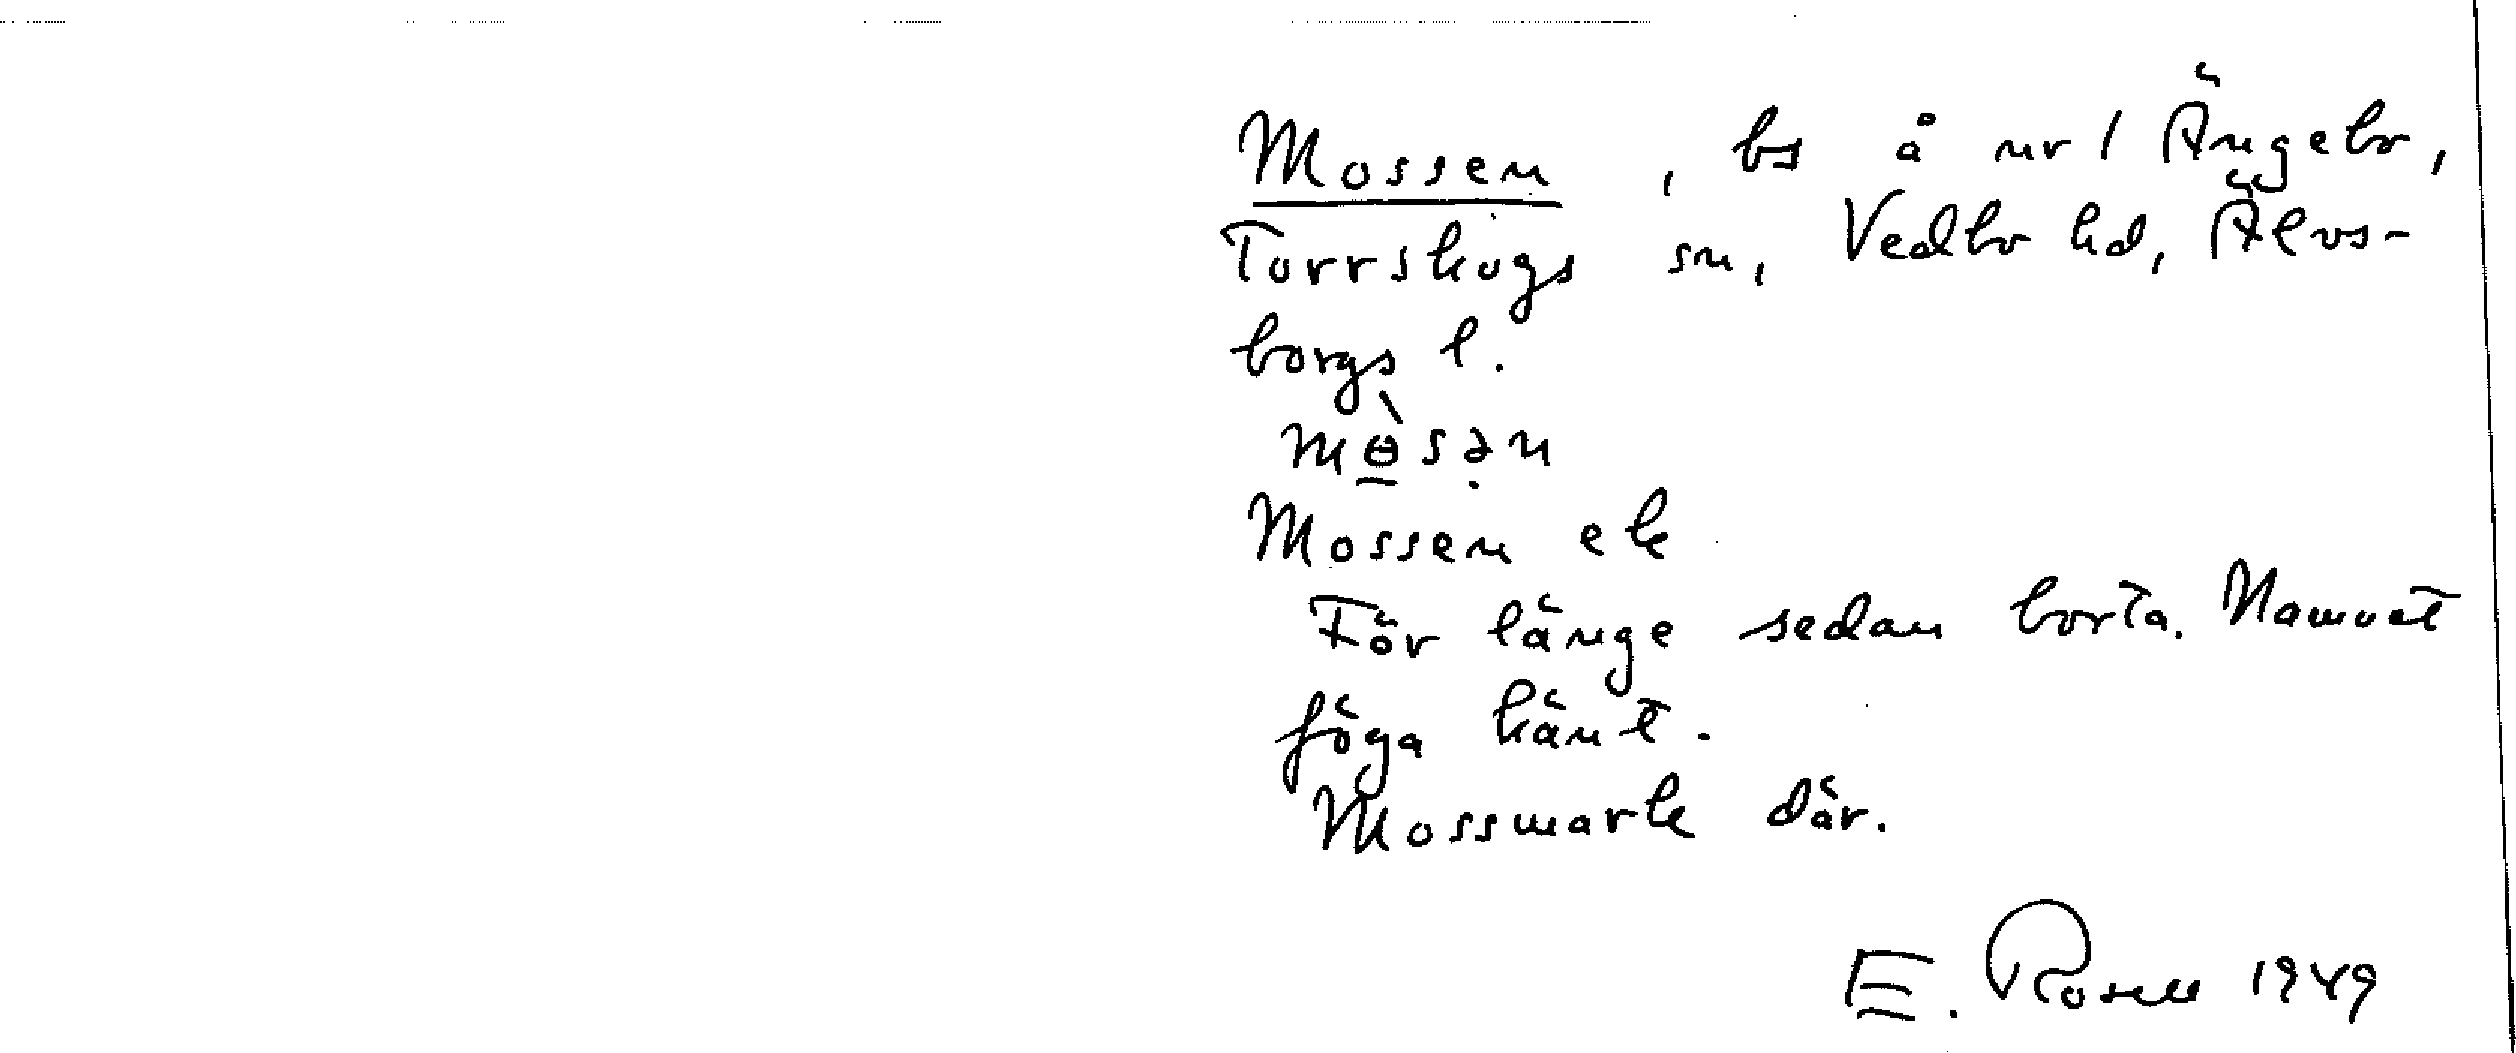 Mossen, bs å nr 1 Ängebo,
Torrskogs sn, Vedbo hd, Älvs-
borgs l.
mɵ̀sən
Mossen ek
För länge sedan borta. Namnet
föga känt.
Mossmark där.
E. Rosell 1949